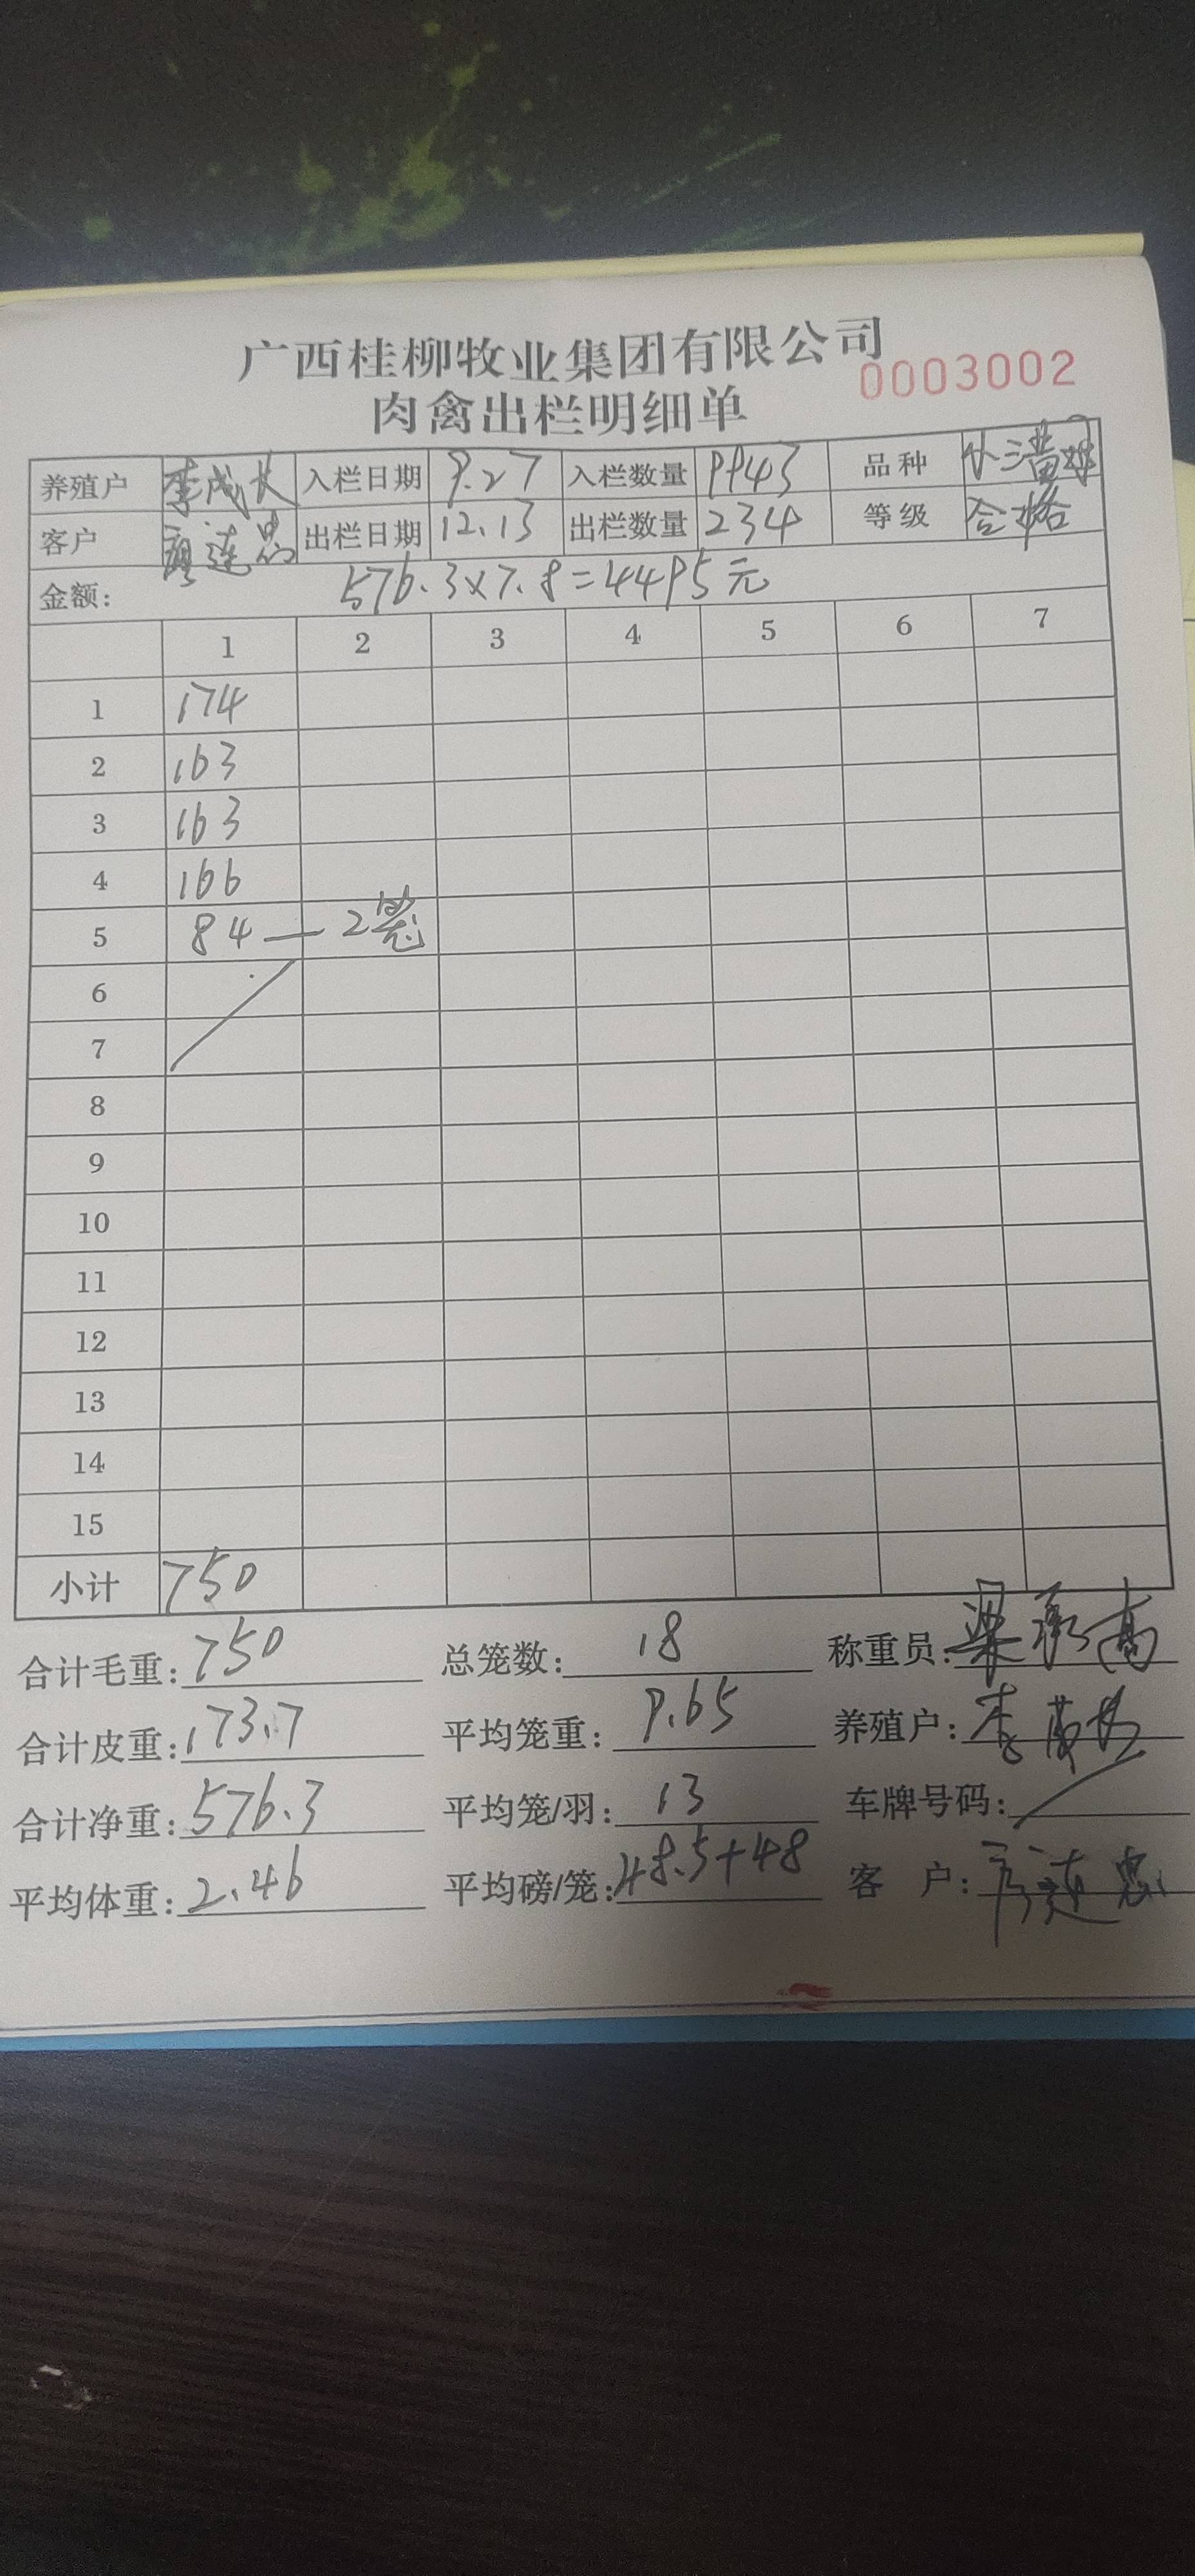 广西桂柳牧业集团有限公司
0003002
肉禽出栏明细单
养殖户 李成长 入栏日期 9.27 入栏数量 9943 品种 小三黄鸡
客户 廖连 出栏日期 12.13 出栏数量 234 等级 合格
金额: 576.3×7.8=4495元
1 2 3 4 5 6 7
1 174
2 163
3 163
4 166
5 84—2笼
6
7
8
9
10
11
12
13
14
15
小计 750
合计毛重: 750 总笼数: 18 称重员: 梁承高
合计皮重: 173.7 平均笼重: 9.65 养殖户: 李
合计净重: 576.3 平均笼/羽: 13 车牌号码:
平均体重: 2.46 平均磅/笼: 48.5+48 客 户: